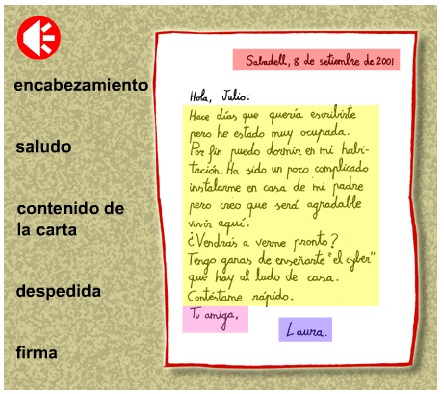 encabezamiento
saludo
contenido de
la carta
despedida
firma
Sabadell, 8 de setiembre de 2001
Hola, Julio.
Hace días que quería escribirte
pero he estado muy ocupada.
Por fin puedo dormir en mi habi-
tación. Ha sido un poco complicado
instalarme en casa de mi padre
pero creo que será agradable
vivir aquí.
¿Vendrás a verme pronto?
Tengo ganas de enseñarte "el cyber"
que hay al lado de casa.
Contéstame rápido.
Tu amiga,
Laura.